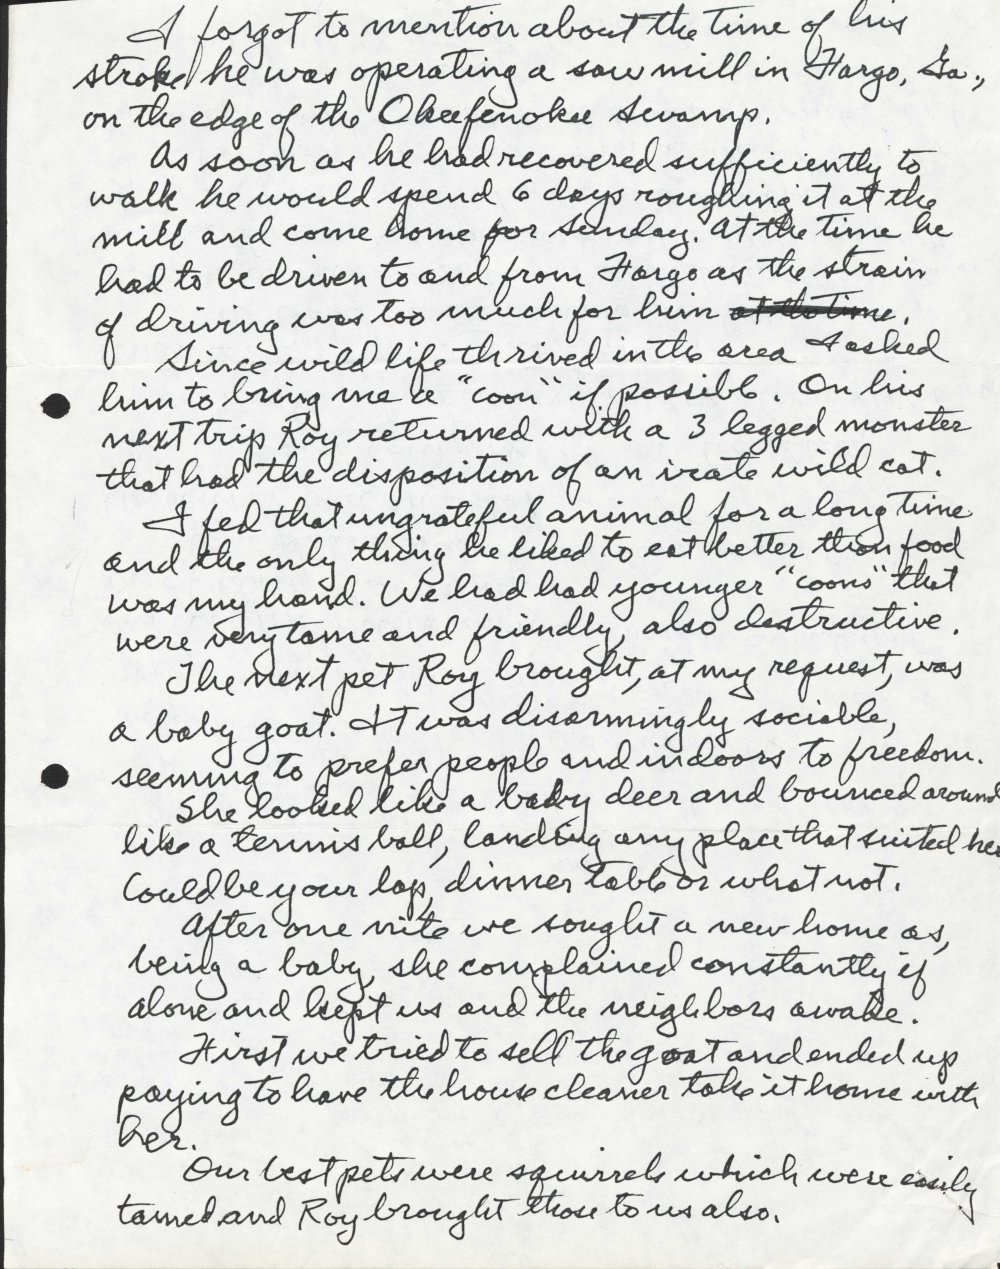 I forgot to mention about the time of his
stroke he was operating a saw mill in Fargo, Ga.,
on the edge of the Okeefenokee Swamp.
As soon as he had recovered sufficiently to
walk he would spend 6 days roughing it at the
mill and come home for Sunday. At the time he
had to be driven to and from Fargo as the strain
of driving was too much for him at the time.
Since wild life thrived in the area I asked
him to bring me a "coon" if possible. On his
next trip Roy returned with a 3 legged monster
that had the disposition of an irate wild cat.
I fed that ungrateful animal for a long time
and the only thing he liked to eat better than food
was my hand. We had had younger "coons" that
were very tame and friendly, also destructive.
The next pet Roy brought, at my request, was
a baby goat. It was disarmingly sociable,
seeming to prefer people and indoors to freedom.
She looked like a baby deer and bounced around
like a tennis ball, landing any place that suited her
Could be your lap, dinner table or what not.
After one nite we sought a new home as,
being a baby, she complained constantly if
alone and kept us and the neighbors awake.
First we tried to sell the goat and ended up
paying to have the house cleaner take it home with
her.
Our best pets were squirrels which were easily
tamed and Roy brought those to us also.